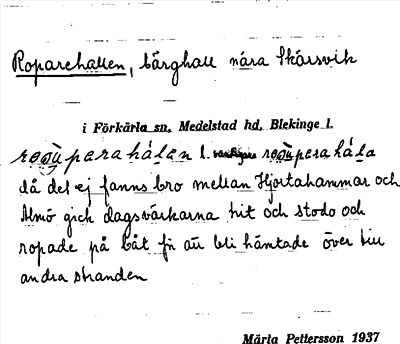 Roparehallen, bärghall nära Skärsvik
i Förkärla sn, Medelstad hd, Blekinge l.
l. vanligare
då det ej fanns bro mellan Hjortahammar och
Almö gick dagsvärkarna hit och stodo och
ropade på båt fr att bli hämtade över till
andra stranden
Märta Pettersson 1937